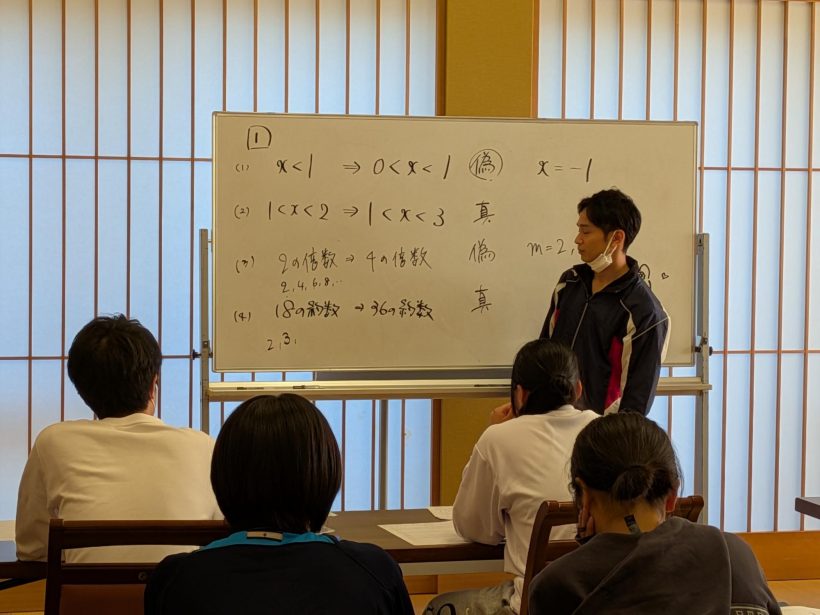 1
(1) x<1 ⇒ 0<x<1 偽 x=-1
(2) 1<x<2 ⇒ 1<x<3 真
(3) 2の倍数 ⇒ 4の倍数 偽 m=2,
2,4,6,8,..
(4) 18の約数 ⇒ 36の約数 真
2,3,